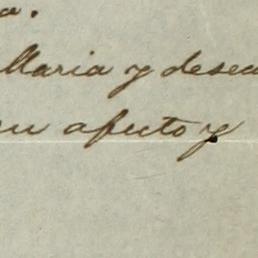 a.
Maria y desea
su afecto y